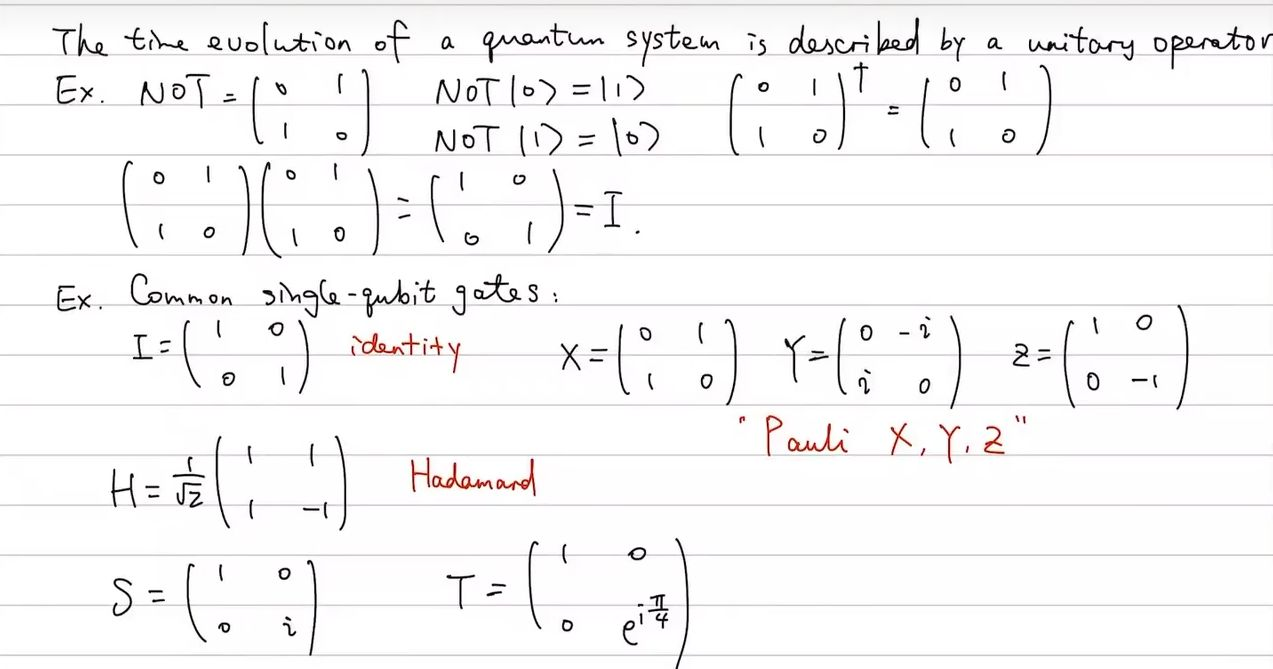 The time evolution of a quantum system is described by a unitary operator
Ex. NOT = ( 0 1 ; 1 0 ) NOT |0> = |1> NOT |1> = |0> ( 0 1 ; 1 0 )† = ( 0 1 ; 1 0 )
( 0 1 ; 1 0 ) ( 0 1 ; 1 0 ) = ( 1 0 ; 0 1 ) = I.
Ex. Common single-qubit gates:
I = ( 1 0 ; 0 1 ) identity X = ( 0 1 ; 1 0 ) Y = ( 0 -i ; i 0 ) Z = ( 1 0 ; 0 -1 )
"Pauli X, Y, Z"
H = 1/√2 ( 1 1 ; 1 -1 ) Hadamard
S = ( 1 0 ; 0 i ) T = ( 1 0 ; 0 e^{iπ/4} )